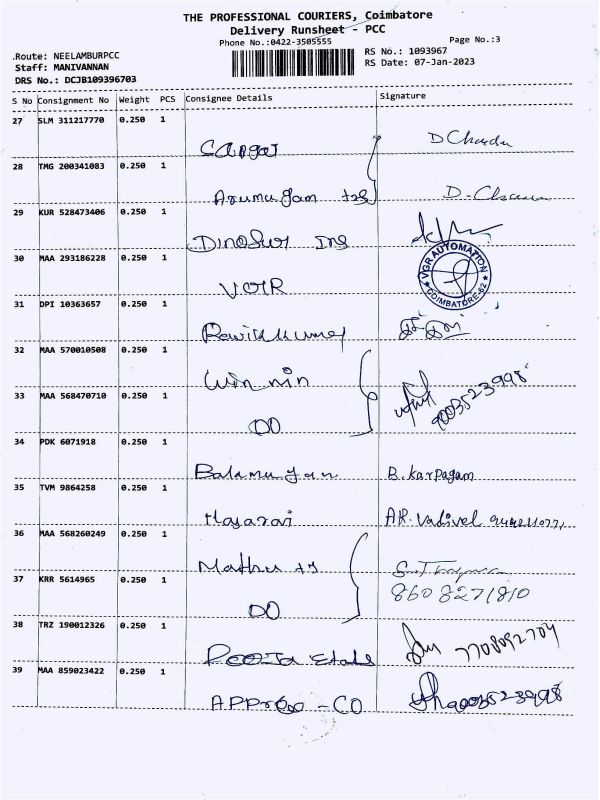 THE PROFESSIONAL COURIERS, Coimbatore
Delivery Runsheet - PCC
Phone No.:0422-3505555
Page No.:3
.Route: NEELAMBURPCC
RS No.: 1093967
Staff: MANIVANNAN
RS Date: 07-Jan-2023
DRS No.: DCJB109396703
S No Consignment No Weight PCS Consignee Details Signature
27 SLM 311217770 0.250 1
28 TMG 200341083 0.250 1
Arumugam
29 KUR 528473406 0.250 1
30 MAA 293186228 0.250 1
VGR AUTOMATION
COIMBATORE-62
31 DPI 10363657 0.250 1
32 MAA 570010508 0.250 1
Win nin
33 MAA 568470710 0.250 1
9003523998
DO
34 PDK 6071918 0.250 1
Balamurgan B. Karpagam
35 TVM 9864258 0.250 1
AR. Vadivel
36 MAA 568260249 0.250 1
37 KRR 5614965 0.250 1
8608271810
DO
38 TRZ 190012326 0.250 1
7708092704
39 MAA 859023422 0.250 1
9003523998